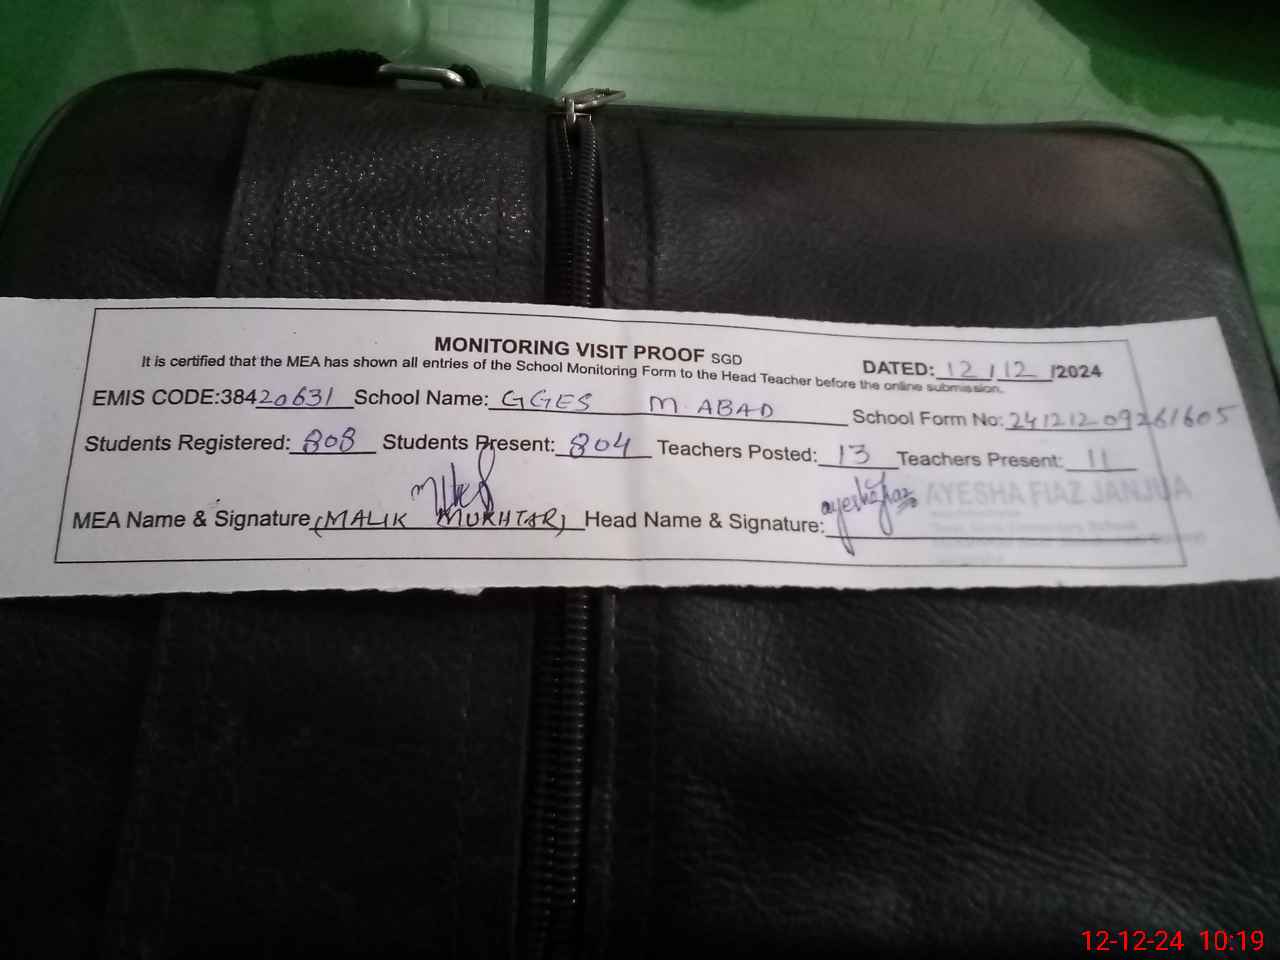 MONITORING VISIT PROOF SGD
It is certified that the MEA has shown all entries of the School Monitoring Form to the Head Teacher before the online submission.
DATED: 12/12/2024
EMIS CODE:38420631 School Name: GGES M. ABAD School Form No: 24121209261605
Students Registered: 808 Students Present: 804 Teachers Posted: 13 Teachers Present: 11
MEA Name & Signature (MALIK MUKHTAR) Head Name & Signature: ayesha fiaz AYESHA FIAZ JANJUA
12-12-24 10:19